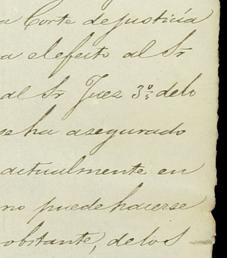 a Corte de justicia
a el efecto al Sr
al Sr Juez 3º de lo
se ha asegurado
actualmente en
no puede hacerse
obstante, de los